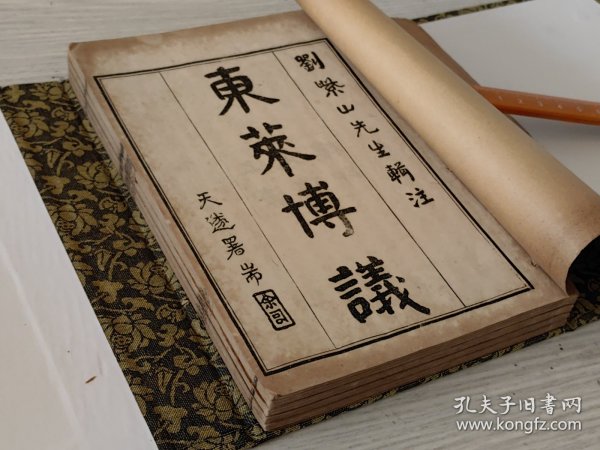 劉紫山先生輯注
東萊博議
天遂署耑
孔夫子旧书网
www.kongfz.com